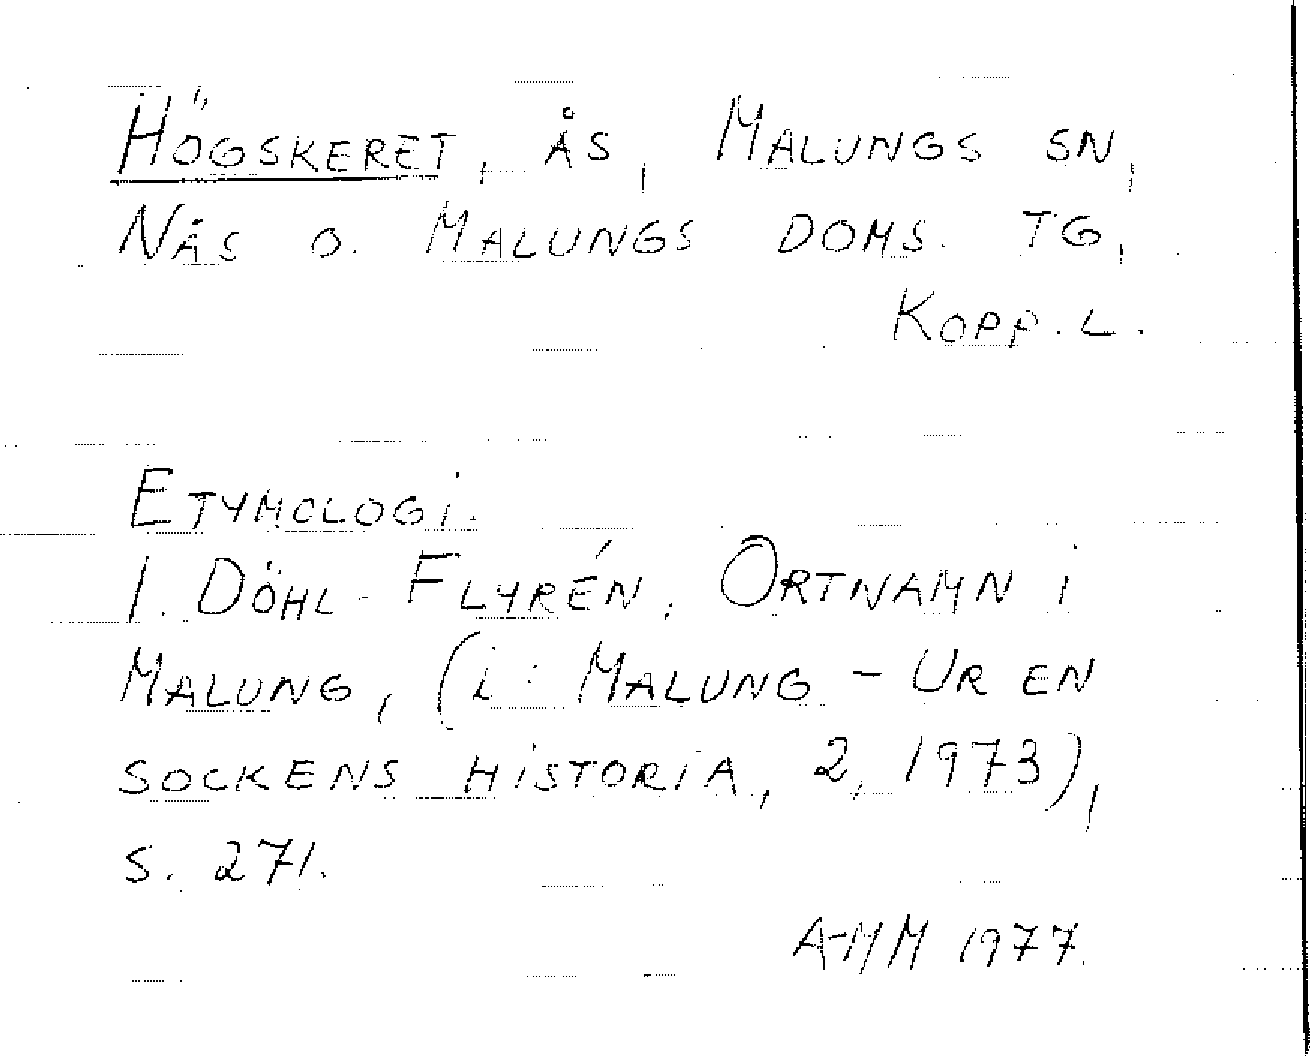 Högskeret, ås, Malungs sn,
Nås o. Malungs doms. tg,
Kopp. l.
Etymologi.
I. Döhl-Flyrén, Ortnamn i
Malung, (i: Malung - Ur en
sockens historia, 2, 1973),
s. 271.
A-MM 1977.